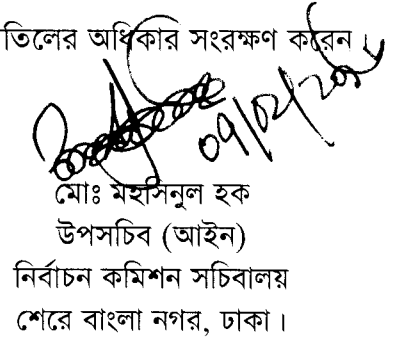 তিলের অধিকার সংরক্ষণ করেন।
মোঃ মহসিনুল হক
উপসচিব (আইন)
নির্বাচন কমিশন সচিবালয়
শেরে বাংলা নগর, ঢাকা।